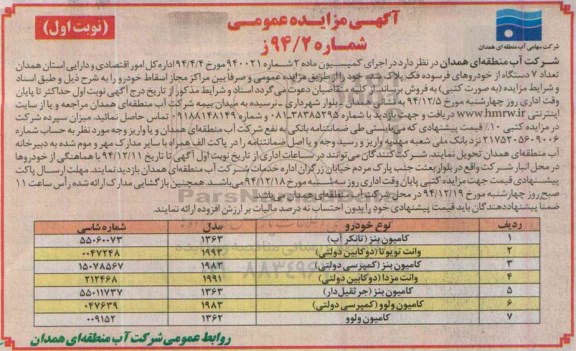 آگهی مزایده عمومی
شماره ۹۴/۲ ز
(نوبت اول)
شرکت سهامی آب منطقه ای همدان
شرکت آب منطقه‌ای همدان در نظر دارد در اجرای کمیسیون ماده ۲ شماره ۹۴۰۰۲۱ مورخ ۹۴/۴/۴ اداره کل امور اقتصادی و دارایی استان همدان
تعداد ۷ دستگاه از خودروهای فرسوده فک پلاک شده خود را از طریق مزایده عمومی و صرفا بین مراکز مجاز اسقاط خودرو را به شرح ذیل و طبق اسناد
و شرایط مزایده (به صورت کتبی) به فروش برساند. از کلیه متقاضیان دعوت می‌گردد اسناد و شرایط مذکور از تاریخ درج آگهی نوبت اول حداکثر تا پایان
وقت اداری روز چهارشنبه مورخ ۹۴/۱۲/۵ به نشانی همدان ـ بلوار شهرداری ـ نرسیده به میدان بیمه شرکت آب منطقه‌ای همدان مراجعه و یا از سایت
اینترنتی www.hmrw.ir دریافت و جهت بازدید با شماره ۳۸۳۸۵۲۹۵-۰۸۱ و شماره ۰۹۱۸۸۱۴۸۱۴۹ تماس حاصل نمائید. میزان سپرده شرکت
در مزایده کتبی ۱۰٪ قیمت پیشنهادی که می‌بایستی طی ضمانتنامه بانکی به نفع شرکت آب منطقه‌ای همدان و یا واریز وجه مورد نظر به حساب شماره
۲۱۷۵۲۰۵۶۰۹۰۰۶ نزد بانک ملی شعبه مهدیه واریز و رسید وجه و یا اصل ضمانتنامه را در پاکت الف همراه با سایر مدارک مهر و موم شده به دبیرخانه
آب منطقه‌ای همدان تحویل نمایند. شرکت کنندگان می‌توانند در ساعات اداری از تاریخ نوبت اول آگهی تا تاریخ ۹۴/۱۲/۱۱ با هماهنگی از خودروها
در محل انبار شرکت واقع در بلوار بعثت جنب پارک مردم خیابان زرگران اداره خدمات شرکت آب منطقه‌ای همدان بازدید نمایند. مهلت ارسال پاکت
پیشنهادی قیمت جهت مزایده کتبی پایان وقت اداری روز سه شنبه مورخ ۹۴/۱۲/۱۸ می‌باشد. همچنین بازگشایی مدارک ارائه شده رأس ساعت ۱۱
صبح روز چهارشنبه مورخ ۹۴/۱۲/۱۹ در محل شرکت آب منطقه‌ای همدان می‌باشد.
ضمنا پیشنهاددهندگان باید قیمت پیشنهادی خود را بدون احتساب نه درصد مالیات بر ارزش افزوده ارائه نمایند.
ردیف نوع خودرو مدل شماره شاسی
۱ کامیون بنز (تانکر آب) ۱۳۶۳ ۵۵۰۶۰۰۷۳
۲ وانت تویوتا (دوکابین دولتی) ۱۹۹۳ ۰۰۴۷۲۴۸
۳ کامیون بنز (کمپرسی دولتی) ۱۹۸۳ ۱۵۰۷۸۵۶۷
۴ وانت مزدا (دوکابین دولتی) ۱۹۹۱ ۲۱۲۴۶۸
۵ کامیون بنز (جرثقیل‌دار) ۱۳۶۳ ۵۵۰۱۱۷۳۷
۶ کامیون ولوو (کمپرسی دولتی) ۱۹۸۳ ۰۴۷۶۳۹
۷ کامیون ولوو ۱۳۶۲ ۰۰۹۱۵۲
روابط عمومی شرکت آب منطقه‌ای همدان